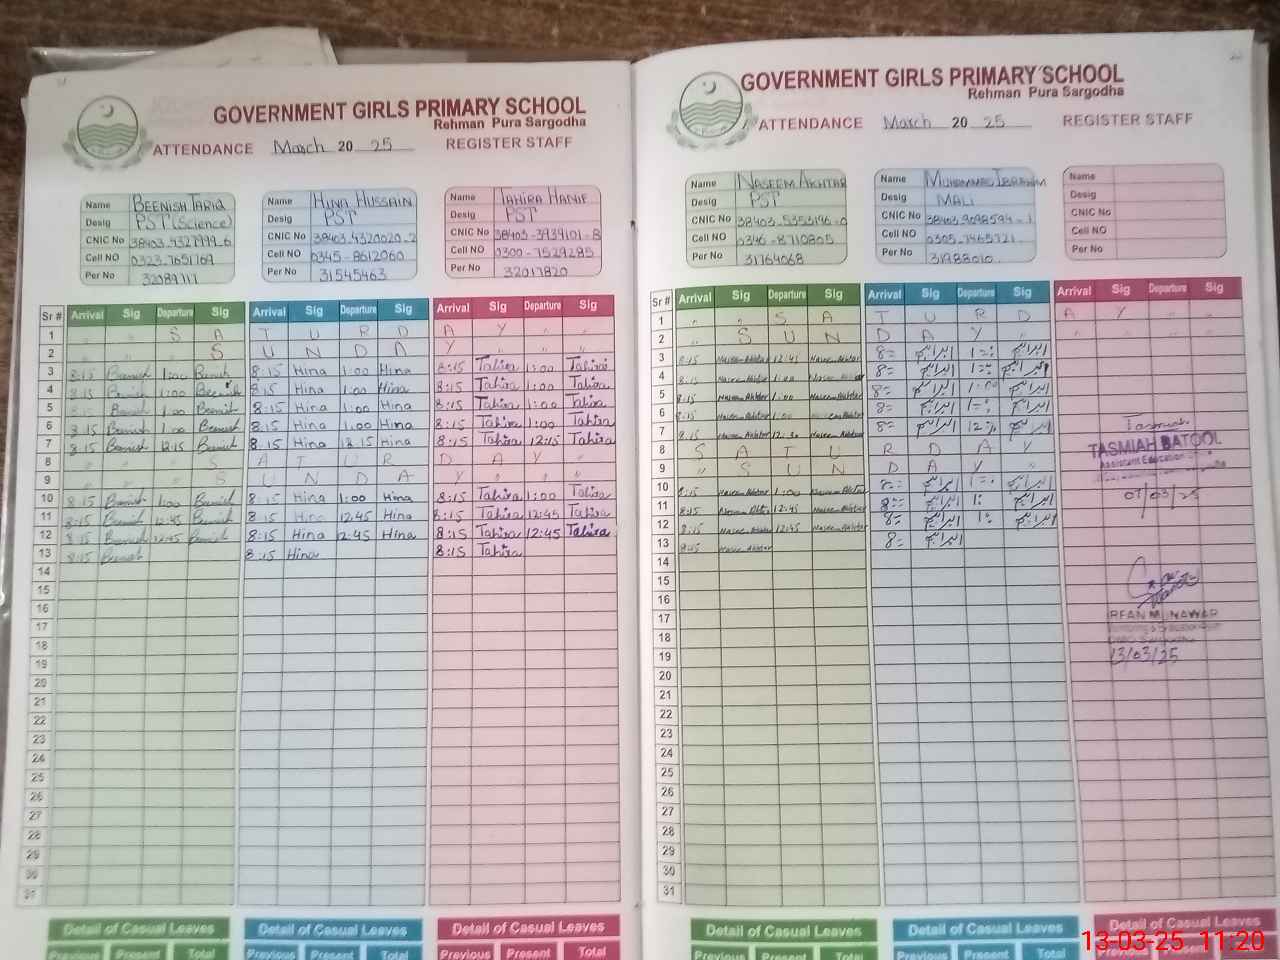 GOVERNMENT GIRLS PRIMARY SCHOOL
Rehman Pura Sargodha
ATTENDANCE March 20 25 REGISTER STAFF
Name BEENISH TARIQ
Desig PST (Science)
CNIC No 38403-4327999-6
Cell NO 0323-7651769
Per No 32089717
Name HINA HUSSAIN
Desig PST
CNIC No 38403-4320020-2
Cell NO 0345-8612060
Per No 31545463
Name TAHIRA HANIF
Desig PST
CNIC No 38403-3939101-8
Cell NO 0300-7529285
Per No 32017820
Sr # Arrival Sig Departure Sig Arrival Sig Departure Sig Arrival Sig Departure Sig
1 " " S A T U R D A Y " "
2 " " " S U N D A Y " " "
3 8:15 Beenish 1:00 Beenish 8:15 Hina 1:00 Hina 8:15 Tahira 1:00 Tahira
4 8:15 Beenish 1:00 Beenish 8:15 Hina 1:00 Hina 8:15 Tahira 1:00 Tahira
5 8:15 Beenish 1:00 Beenish 8:15 Hina 1:00 Hina 8:15 Tahira 1:00 Tahira
6 8:15 Beenish 1:00 Beenish 8:15 Hina 1:00 Hina 8:15 Tahira 1:00 Tahira
7 8:15 Beenish 12:15 Beenish 8:15 Hina 12:15 Hina 8:15 Tahira 12:15 Tahira
8 " " " S A T U R D A Y "
9 " " " S U N D A Y " " "
10 8:15 Beenish 1:00 Beenish 8:15 Hina 1:00 Hina 8:15 Tahira 1:00 Tahira
11 8:15 Beenish 12:45 Beenish 8:15 Hina 12:45 Hina 8:15 Tahira 12:45 Tahira
12 8:15 Beenish 12:45 Beenish 8:15 Hina 12:45 Hina 8:15 Tahira 12:45 Tahira
13 8:15 Beenish 8:15 Hina 8:15 Tahira
14
15
16
17
18
19
20
21
22
23
24
25
26
27
28
29
30
31
Detail of Casual Leaves Detail of Casual Leaves Detail of Casual Leaves
Previous Present Total Previous Present Total Previous Present Total
GOVERNMENT GIRLS PRIMARY SCHOOL
Rehman Pura Sargodha
ATTENDANCE March 20 25 REGISTER STAFF
Name NASEEM AKHTAR
Desig PST
CNIC No 38403-5353196-0
Cell NO 0346-8710805
Per No 31764068
Name MUHAMMAD IBRAHIM
Desig MALI
CNIC No 38403-9098594-1
Cell NO 0305-7465721
Per No 31988010
Name
Desig
CNIC No
Cell NO
Per No
Sr # Arrival Sig Departure Sig Arrival Sig Departure Sig Arrival Sig Departure Sig
1 " " S A T U R D A Y " "
2 " S U N D A Y " " " " "
3 8:15 Naseem Akhtar 12:45 Naseem Akhtar ابراہیم ابراہیم
4 8:15 Naseem Akhtar 1:00 Naseem Akhtar ابراہیم ابراہیم
5 8:15 Naseem Akhtar 1:00 Naseem Akhtar ابراہیم ابراہیم
6 8:15 Naseem Akhtar 1:00 Naseem Akhtar ابراہیم ابراہیم
7 8:15 Naseem Akhtar 12:30 Naseem Akhtar ابراہیم ابراہیم
8 S A T U R D A Y
9 " S U N D A Y "
10 8:15 Naseem Akhtar 1:00 Naseem Akhtar ابراہیم ابراہیم
11 8:15 Naseem Akhtar 12:45 Naseem Akhtar ابراہیم ابراہیم
12 8:15 Naseem Akhtar 12:45 Naseem Akhtar ابراہیم ابراہیم
13 8:15 Naseem Akhtar ابراہیم
14
15
16
17
18
19
20
21
22
23
24
25
26
27
28
29
30
31
Tasmiah
TASMIAH BATOOL
Assistant Education
07/03/25
IRFAN MUNAWAR
13/03/25
Detail of Casual Leaves Detail of Casual Leaves Detail of Casual Leaves
Previous Present Total Previous Present Total
13-03-25 11:20